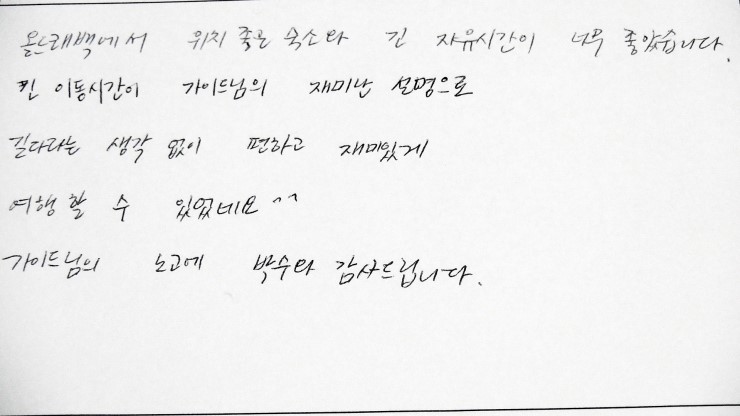 올드래백에서 위치 좋은 숙소와 긴 자유시간이 너무 좋았습니다.
긴 이동시간이 가이드님의 재미난 설명으로
길다라는 생각 없이 편하고 재미있게
여행 할 수 있었네요^^
가이드님의 노고에 박수와 감사드립니다.